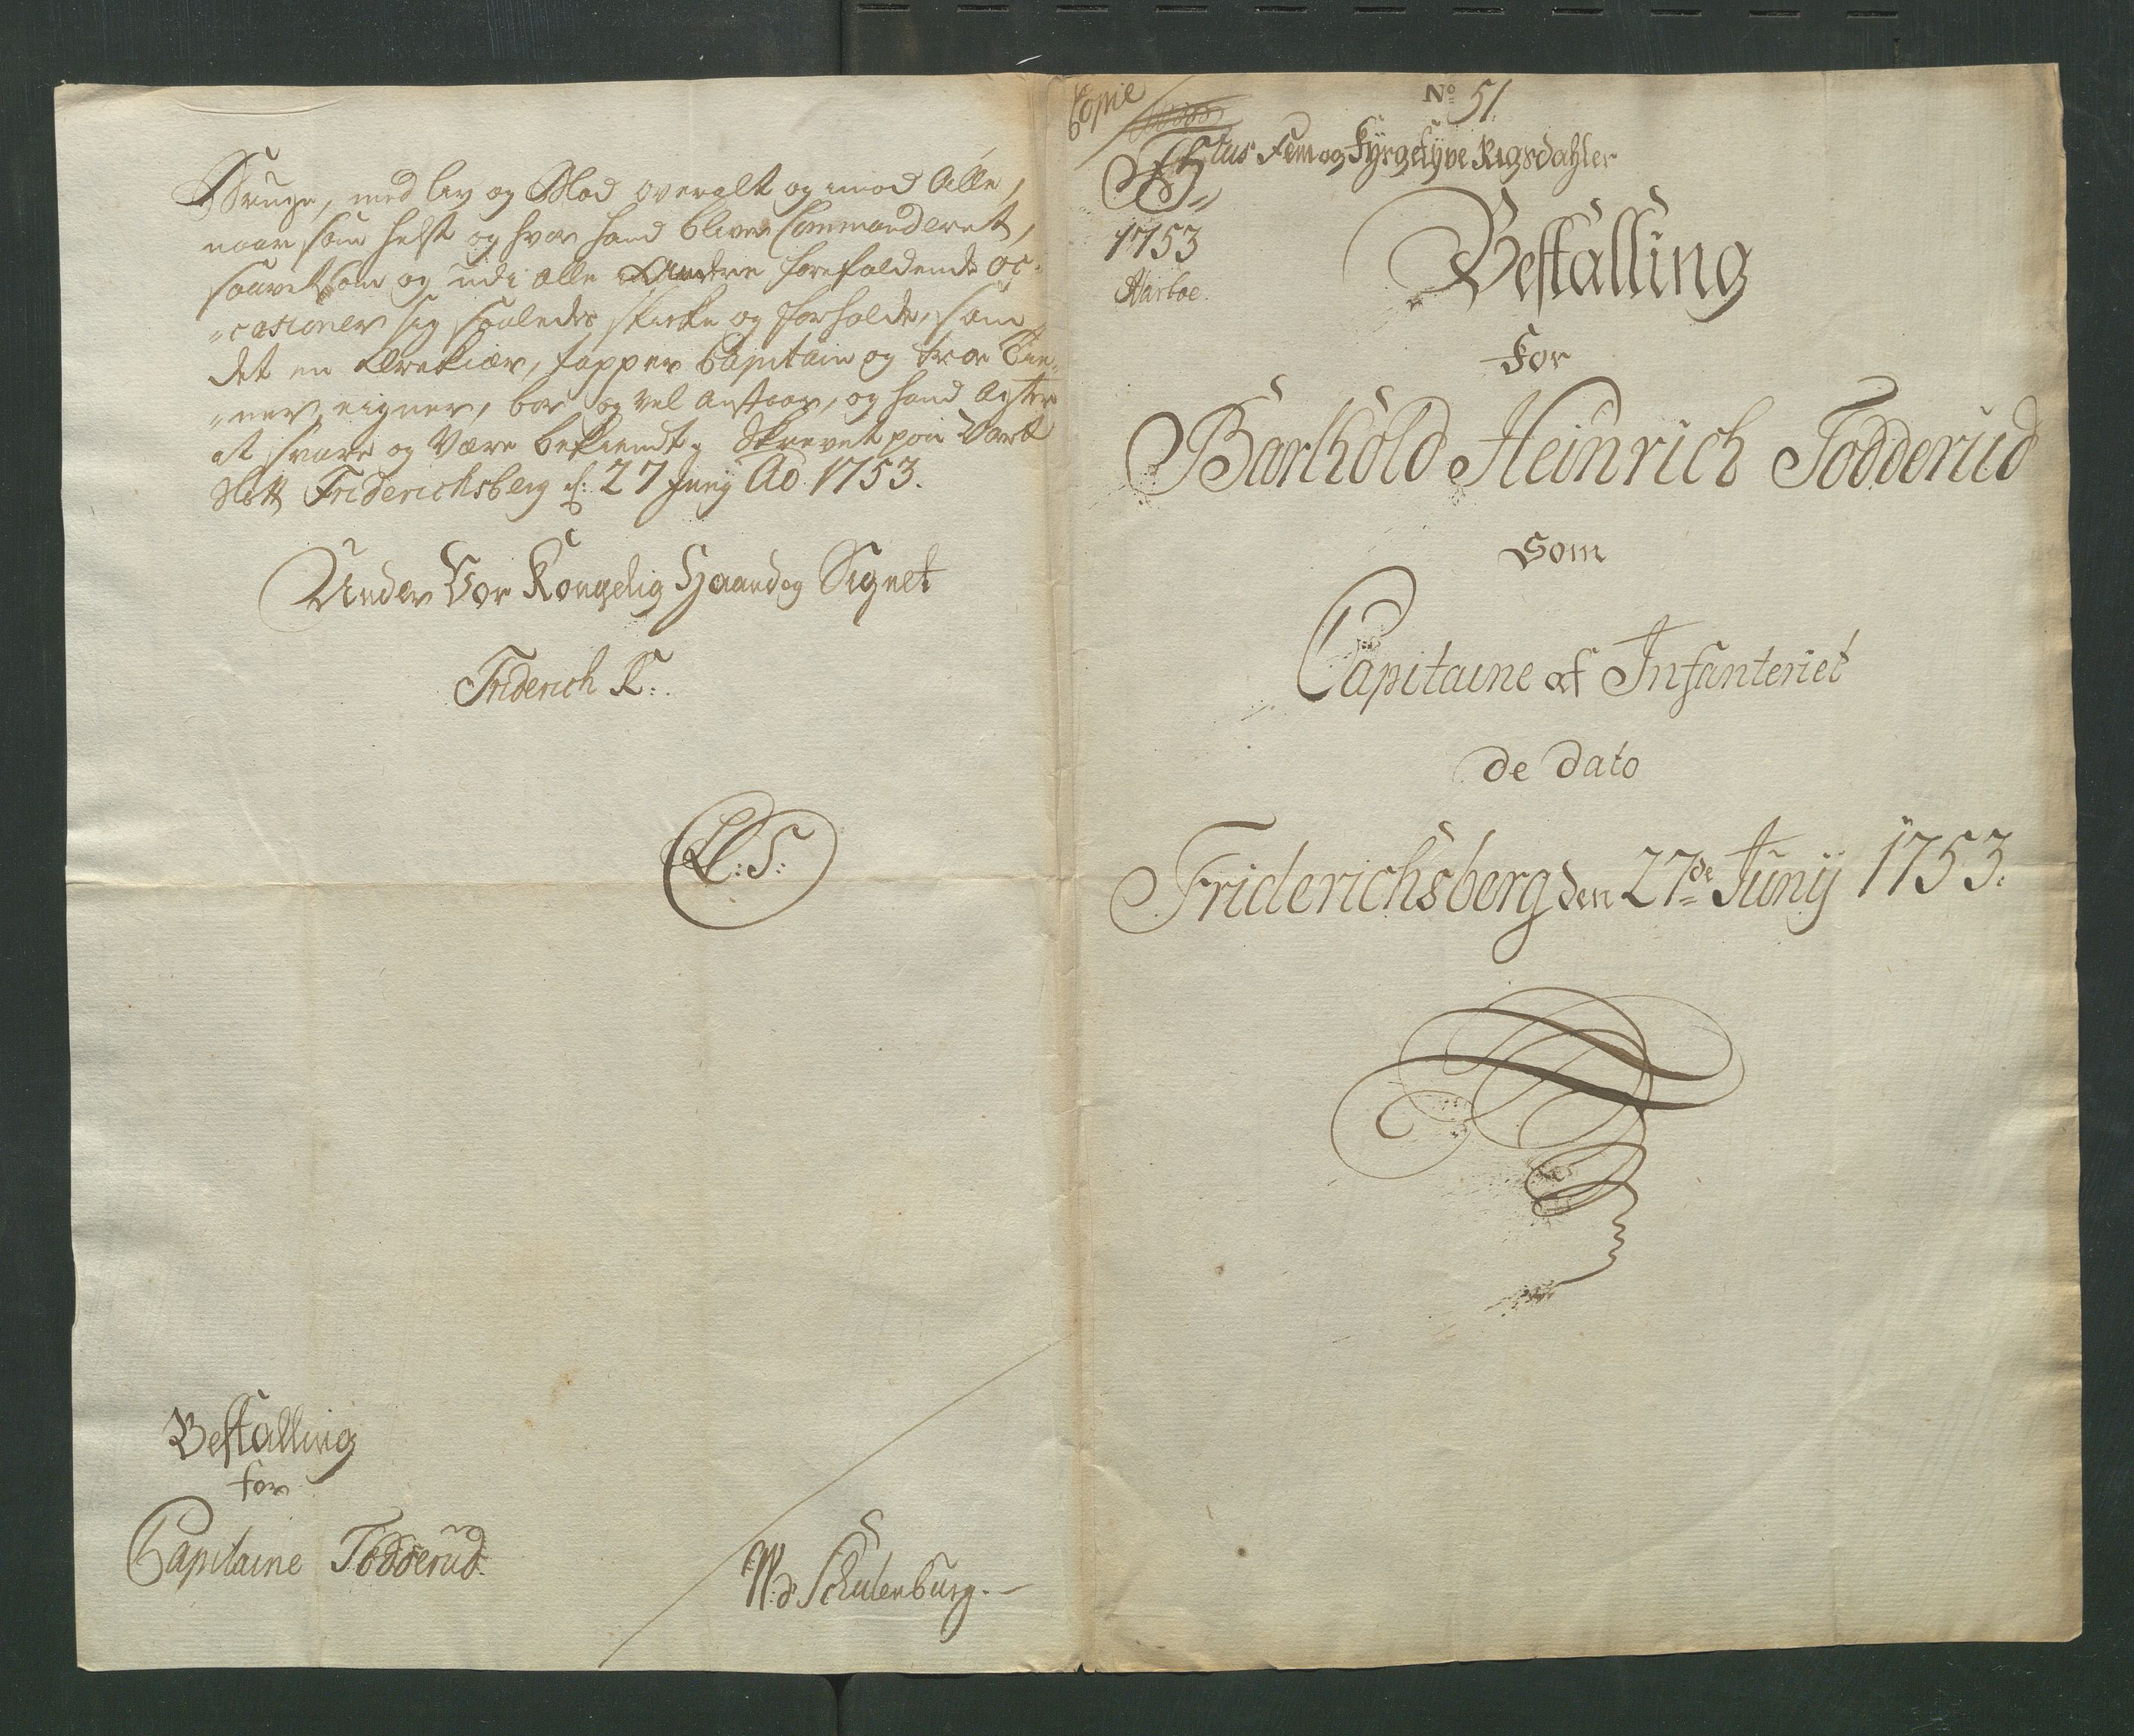 Bruge, med Liv og Blod overalt og imod Alle,
naar som helst og hvor hand bliver Commanderet,
saavel som og udi alle Andre forefaldende oc-
"casioner sig saaledes skikke og forholde, som
det en Ærekiær, tapper Capitain og troe Tie-
"ner eigner, bør og vel anstaar, og hand agter
at svare og Være bekiendt. Skrevet paa Vort
Slott Friderichsberg d: 27 Junij Ao 1753.
Under Vor Kongelig Haand og Signet
Friderich R:.
L:S:
Bestalling
for
Capitaine Todderud.
W: d Schulenburg.
Copie
No 51.
Fem og Fyrgetyve Rigsdahler
1753
Aarboe.
Bestalling
For
Barthold Heinrich Todderud
Som
Capitaine af Infanteriet
de Dato
Friderichsberg den 27de Junij 1753.